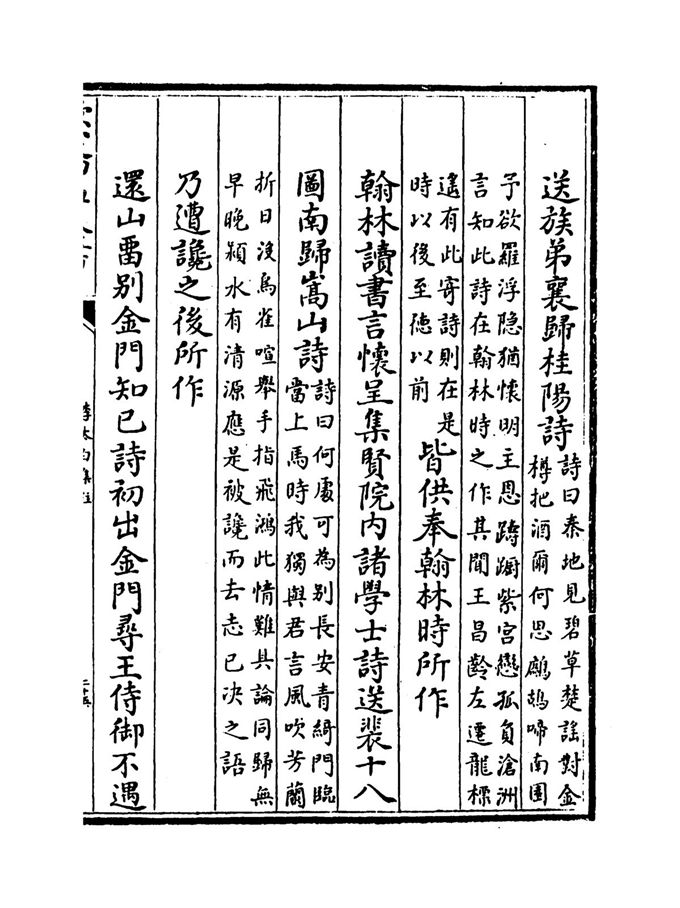 送族弟襄歸桂陽詩
詩曰秦地見碧草楚謡對金
樽把酒爾何思鷓鴣啼南園
予欲羅浮隐猶懷明主恩躊躕紫宫戀孤負滄洲
言知此詩在翰林時之作其聞王昌齡左遷龍標
遙有此寄詩則在是
時以後至徳以前
皆供奉翰林時所作
翰林讀書言懷呈集賢院内諸學士詩送裴十八
圖南歸嵩山詩
詩曰何處可為别長安青綺門臨
當上馬時我獨與君言風吹芳蘭
折日没鳥雀喧舉手指飛鴻此情難具論同歸無
早晚潁水有清源應是被讒而去志已决之語
乃遭讒之後所作
還山留别金門知已詩初出金門尋王侍御不遇
李太白集注